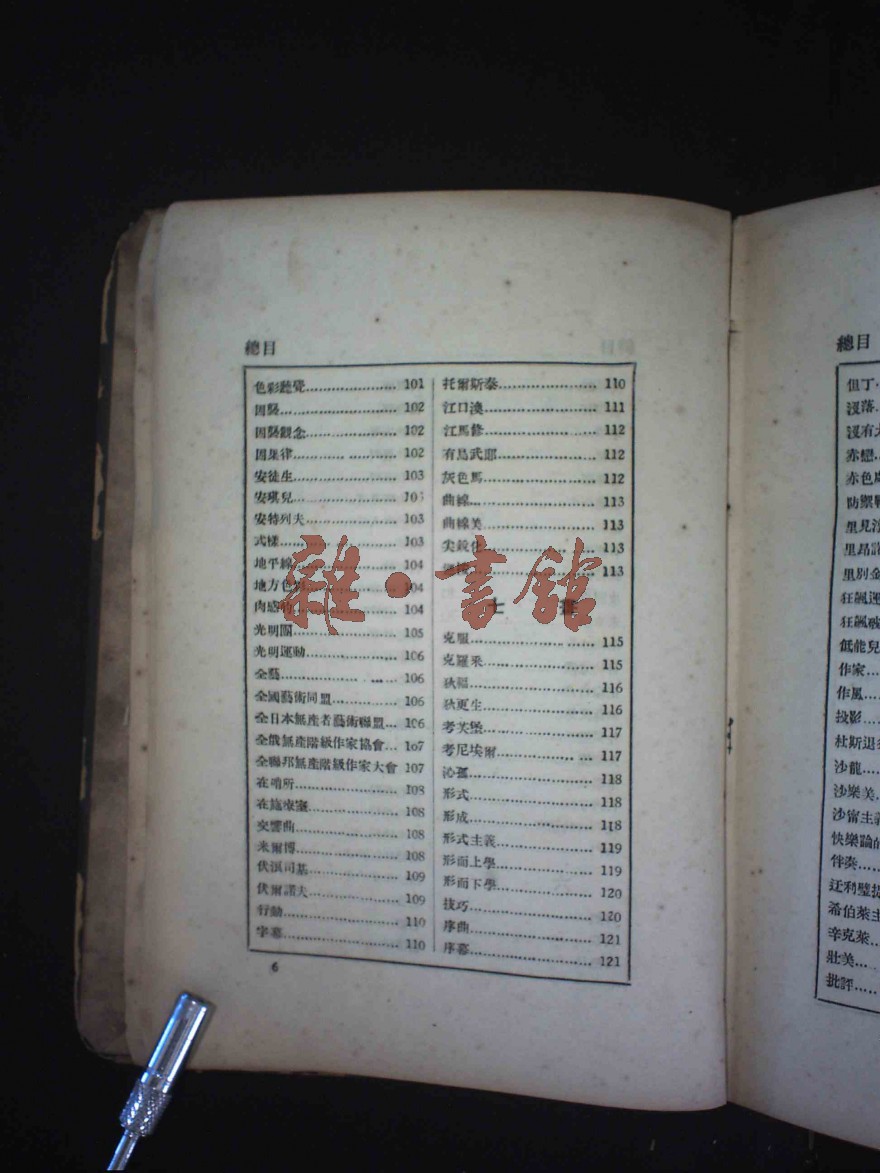 總目
色彩聽覺 101
因襲 102
因襲觀念 102
因果律 102
安徒生 103
安琪兒 103
安特列夫 103
式樣 103
地平線 104
地方色彩 104
肉感的 104
光明團 105
光明運動 106
全藝 106
全國藝術同盟 106
全日本無產者藝術聯盟 106
全俄無產階級作家協會 107
全聯邦無產階級作家大會 107
在哨所 108
在施療室 108
交響曲 108
米爾博 108
伏浪司基 109
伏爾諾夫 109
行動 110
字幕 110
托爾斯泰 110
江口渙 111
江馬修 112
有島武郎 112
灰色馬 112
曲線 113
曲線美 113
尖銳化 113
113
七畫
克服 115
克羅采 115
狄福 116
狄更生 116
考芙堡 117
考尼埃爾 117
沁孤 118
形式 118
形成 118
形式主義 119
形而上學 119
形而下學 120
技巧 120
序曲 121
序幕 121
6
雜·書館
總目
但丁
沒落
沒有
赤戀
赤色
防禦
里見
里昂
里別
狂飆運
狂飆
低能兒
作家
作風
投影
杜斯退
沙龍
沙樂美
沙甯主義
快樂論的
伴奏
迂利璧
希伯萊主
辛克萊
壯美
批評